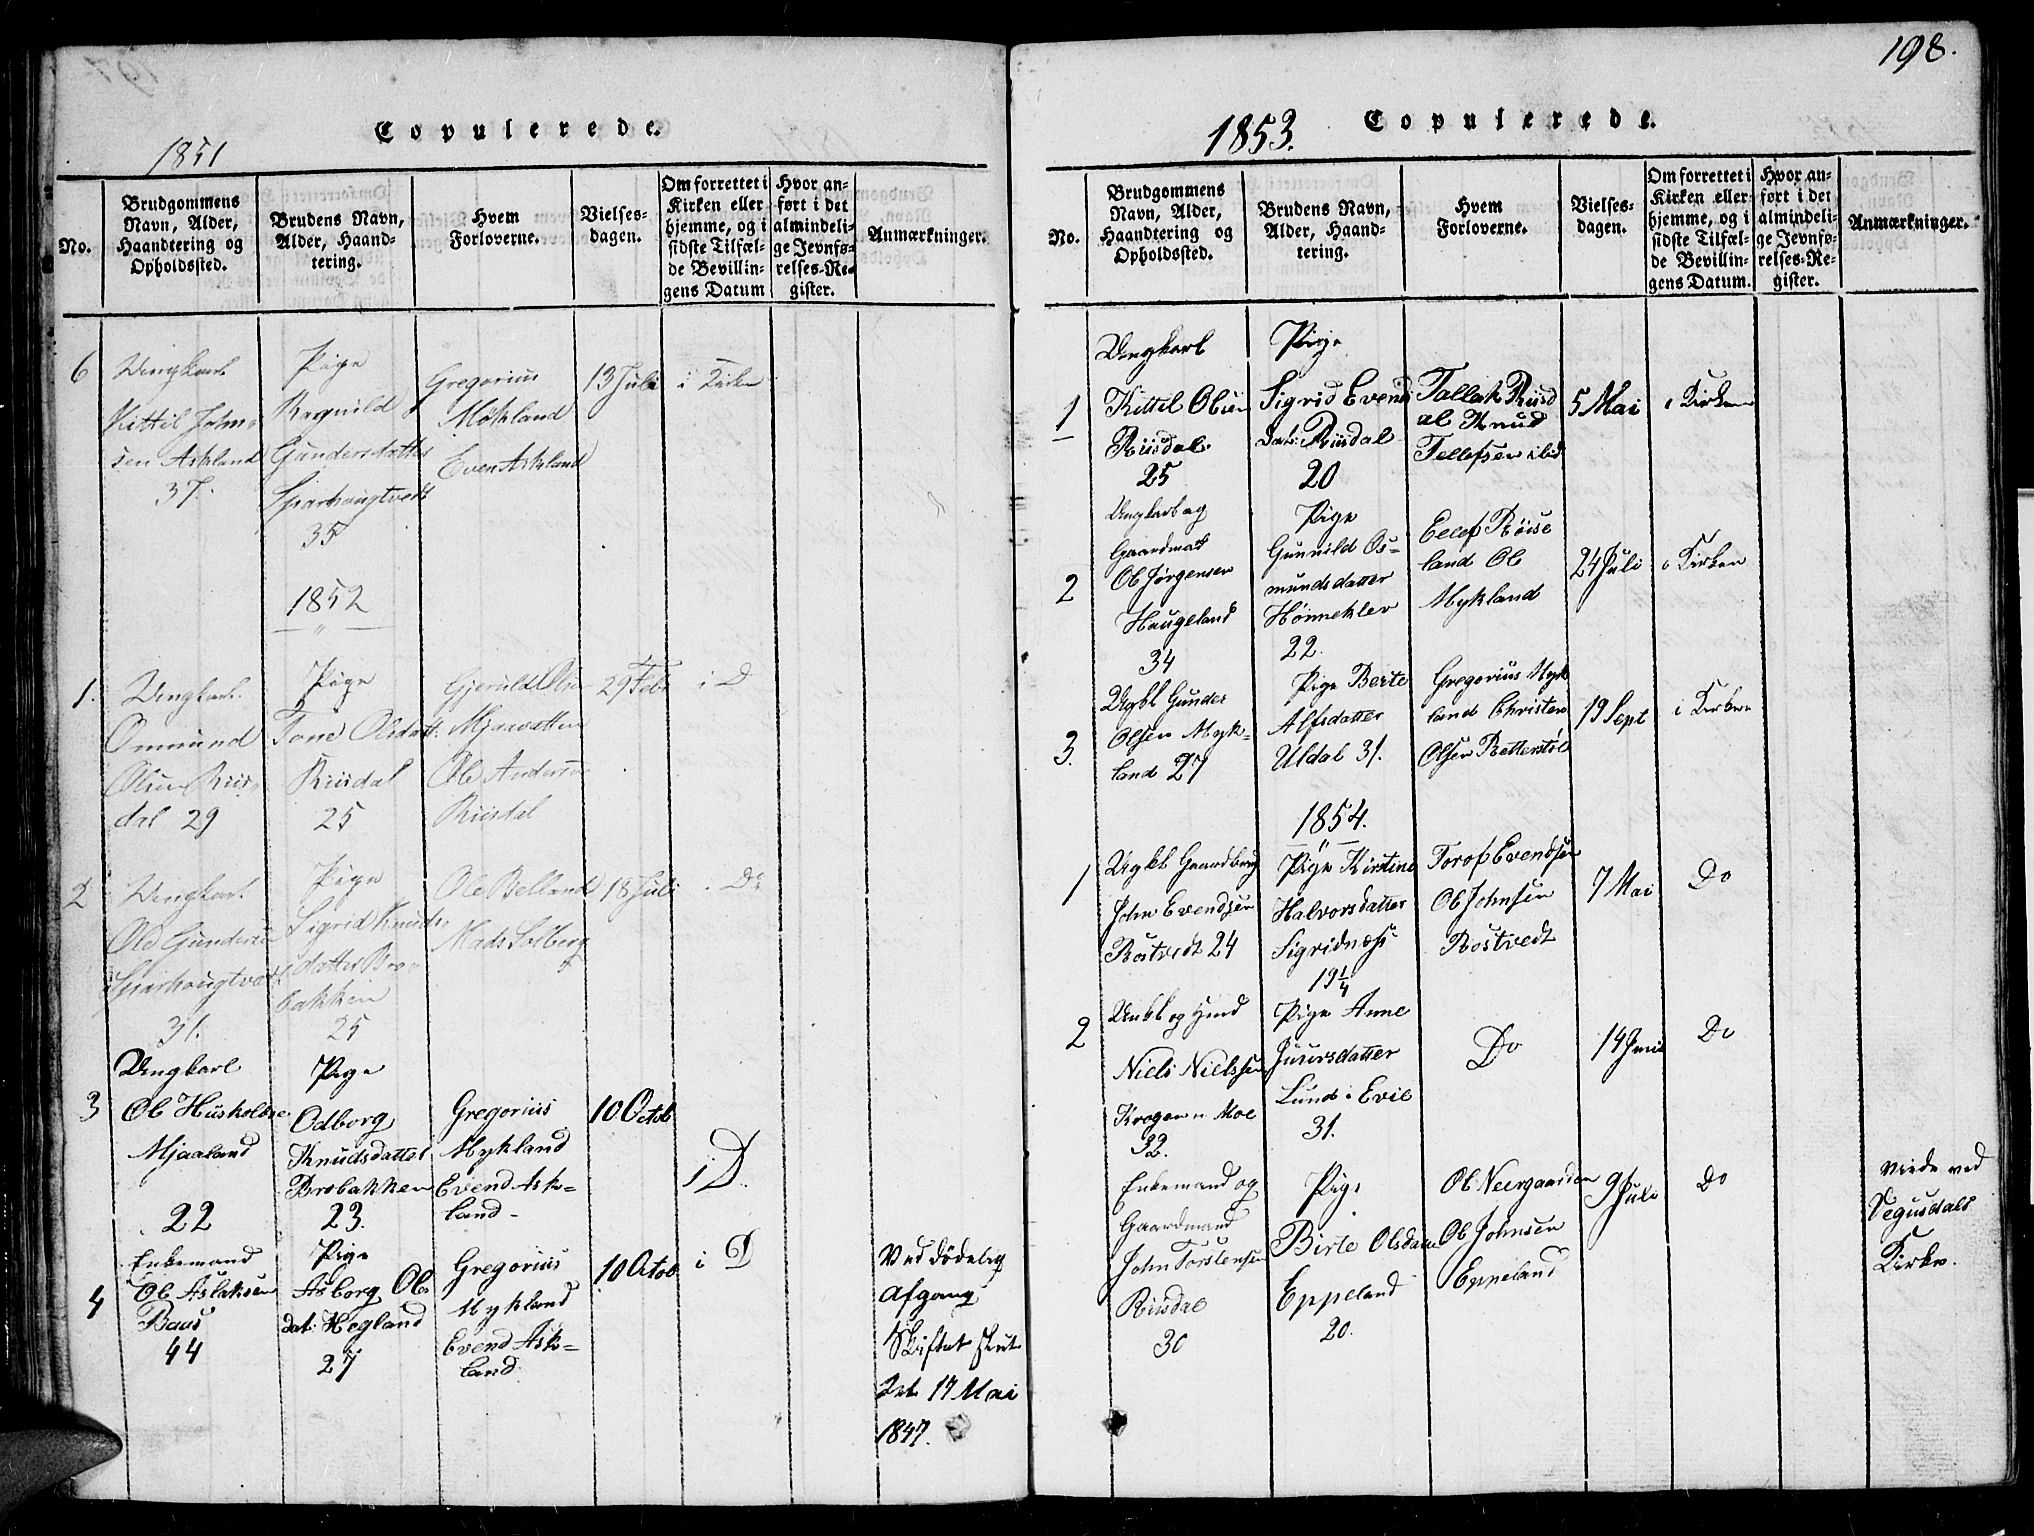 Copulerede.
1851
No.
Brudgommens
Navn, Alder,
Haandtering og
Opholdssted.
Brudens Navn,
Alder, Haand-
tering.
Hvem
Forloverne.
Vielses-
dagen.
Om forrettet i
Kirken eller
hjemme, og i
sidste Tilfæl-
de Bevillin-
gens Datum
Hvor an-
ført i det
almindeli-
ge Jevnfø-
relses-Re-
gister.
Anmærkninger.
6
Ungkarl
Kittil John-
sen Askland
37.
Pige
Ragnild
Gundersdatter
Sparhougtvedt
35
Gregorius
Mökland
Even Askland
13 Juli
i Kirken
1852
1.
Ungkarl.
Ommund
Olsen Riis-
dal 29
Pige
Tone Olsdatt.
Riisdal
25
Gjeruld Olsen
Mjaavatten
Ole Andersen
Riisdal
29 Febr
i D
2
Ungkarl.
Ole Gundersen
Sparhougtvedt
31.
Pige
Sigrid Knuds-
datter Bro-
bakken
25
Ole Belland
Mads Solberg
18 Juli
Do
3
Ungkarl
Ole
Mjaaland
22
Pige
Odborg
Knudsdatter
Brobakken
23.
Gregorius
Mykland
Evend Ask-
land
10 Octob
i D.
4
Enkemand
Ole Aslaksen
Baas
44
Pige
Asborg Ols
dat. Hegland
27
Gregorius
Mykland
Evend Ask-
land
10 Octob
i D
Ved dödelig
Afgang
Skiftet slut
tet 17 Mai
1847.
198.
1853.
Copulerede.
No.
Brudgommens
Navn, Alder,
Haandtering og
Opholdssted.
Brudens Navn,
Alder, Haand-
tering.
Hvem
Forloverne.
Vielses-
dagen.
Om forrettet i
Kirken eller
hjemme, og i
sidste Tilfæl-
de Bevillin-
gens Datum.
Hvor an-
ført i det
almindeli-
ge Jevnfø-
relses-Re-
gister.
Anmærkninger.
1
Ungkarl
Kittel Olsen
Riisdal
25
Pige
Sigrid Evends
Dat. Riisdal
20
Tallak Riisd
al Knud
Tellefsen ibid
5 Mai
i Kirken
2
Ungkarl og
Gaardmand
Ole Jørgensen
Haugeland
34
Pige
Gunnild Os-
mundsdatter
Hönneklev
22.
Eelef Röise
land Ole
Mykland
24 Juli
i Kirken
3.
Ungkl Gunder
Olsen Myk-
land 27
Pige Berte
Alfsdatter
Uldal 31.
Gregorius Myk
land Christen
Olsen Retterstöl
19 Sept
i Kirken
1854.
1
Ungkl Gaardbrug
John Evendsen
Rostvedt 24
Pige Kirstine
Halvorsdatter
Sigridnæs
19 1/4
Torof Evendsen
Ole Johnsen
Rostvedt
7 Mai
Do
2
Niels Nielssen
Krogen n Moe
32.
Pige Anne
Lund i Evie
31.
Do
14 Juni
Do
Enkemand og
Gaardmand
John Torstensen
Riisdal
30
Pige
Birte Olsdatter
Eppeland
20.
Ole Neergaardson
Ole Johnsen
Eppeland
9 Juli
Do
Viede ved
Vegusdals
Kirke.